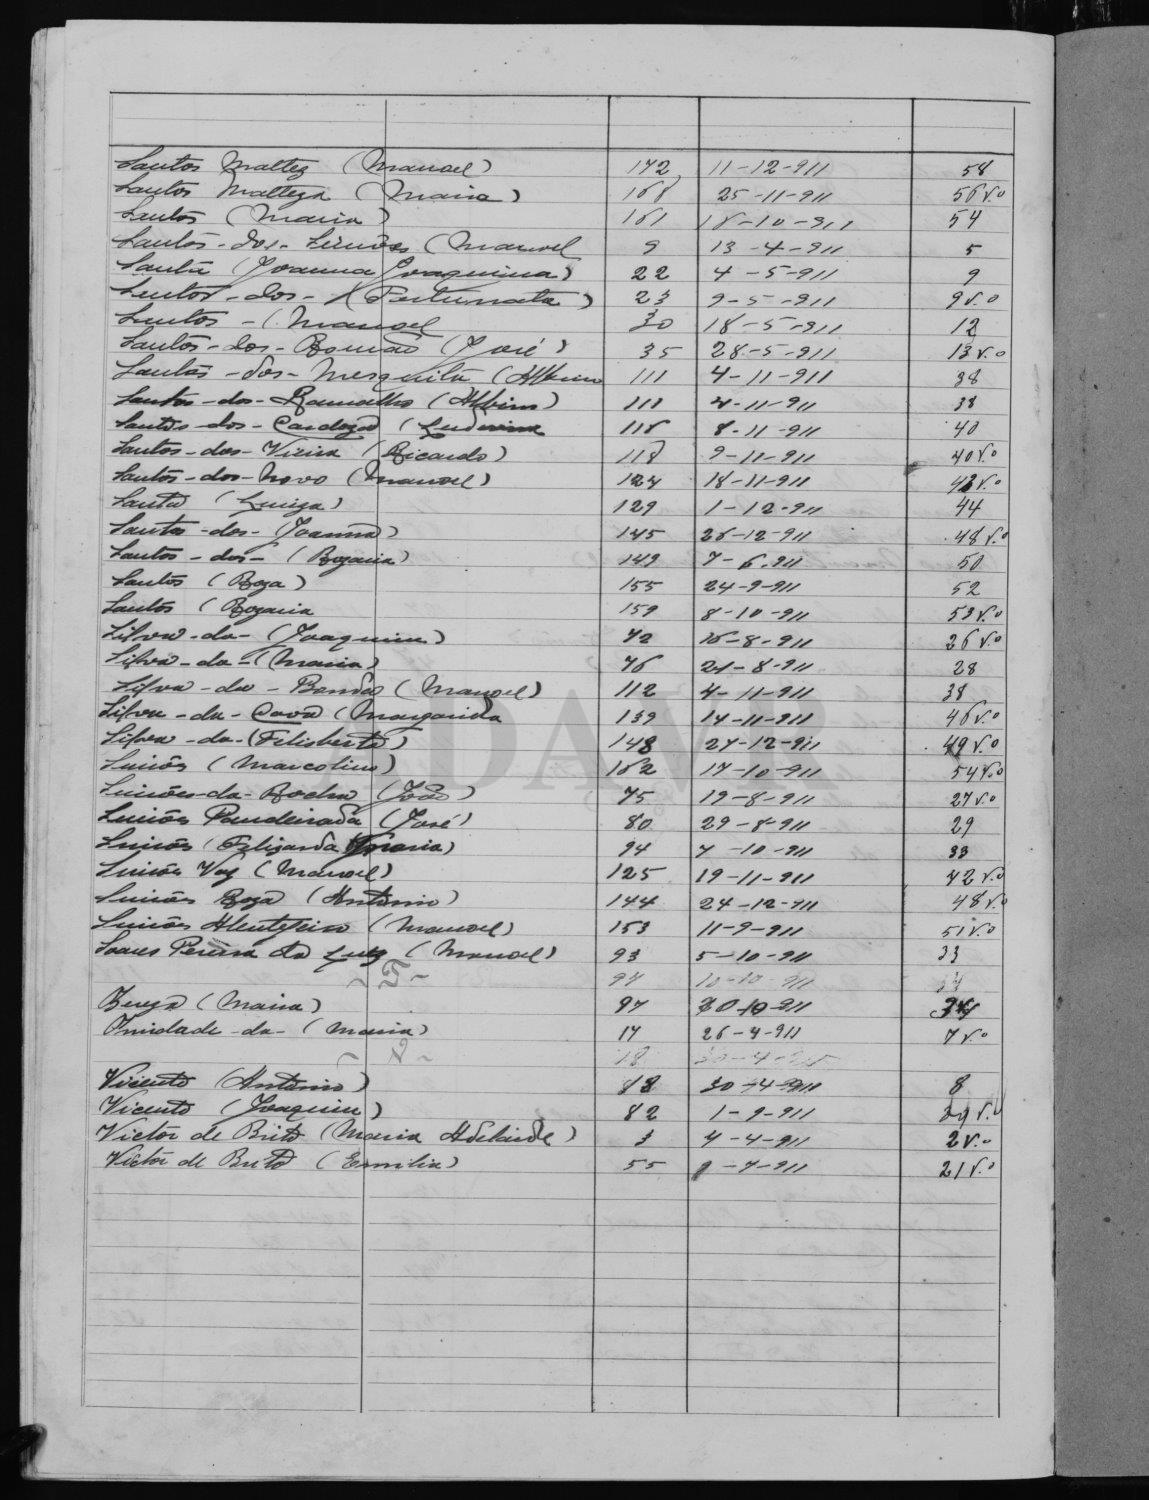 Santos Maltez (Manoel) 172 11-12-911 58
Santos Malteza (Maria) 168 25-11-911 56 v.o
Santos (Maria) 161 18-10-911 54
Santos-dos-Simões (Manoel 9 13-4-911 5
Santa (Joanna Joaquina) 22 4-5-911 9
Santos-dos-(Fortunata) 23 9-5-911 9 v.o
Santos-(Manoel 30 18-5-911 12
Santos-dos-Romão (José) 35 28-5-911 13 v.o
Santos-dos-Mesquita (Albino 111 4-11-911 38
Santos-dos-Ramalho (Albino) 111 4-11-911 38
Santos-dos-Cardozo ( 116 8-11-911 40
Santos-dos-Vieira (Ricardo) 118 9-11-911 40 v.o
Santos-dos-Novo (Manoel) 124 18-11-911 42 v.o
Santo (Luiza) 129 1-12-911 44
Santos-dos-(Joanna) 145 26-12-911 48 v.o
Santos-dos-(Rozaria) 149 7-6-911 50
Santos (Roza) 155 24-9-911 52
Santos (Rozaria 159 8-10-911 53 v.o
Silva-da-(Joaquim) 72 16-8-911 26 v.o
Silva-da-(Maria) 76 21-8-911 28
Silva-da-Bando (Manoel) 112 4-11-911 38
Silva-da-Cova (Margarida 139 14-11-911 46 v.o
Silva-da-(Felisberto) 148 27-12-911 49 v.o
Simões (Marcolino) 162 17-10-911 54 v.o
Simões-da-Rocha (João) 75 19-8-911 27 v.o
Simões Pandeirada (José) 80 29-8-911 29
Simões (Felizarda Maria) 94 7-10-911 33
Simões Vaz (Manoel) 125 19-11-911 42 v.o
Simões Roza (Antonio) 144 24-12-911 48 v.o
Simões Alentejeiro (Manoel) 153 11-9-911 51 v.o
Soares Pereira da Luz (Manoel) 93 5-10-911 33
-T- 97 10-10-911 34
Tereza (Maria) 97 10-10-911 34
Trindade-da-(Maria) 17 26-4-911 7 v.o
-V- 18 30-4-911
Vicente (Antonio) 18 30-4-911 8
Vicente (Joaquim) 82 1-9-911 29 v.o
Victor de Brito (Maria Adelaide) 3 4-4-911 2 v.o
Victor de Brito (Emilia) 55 9-7-911 21 v.o